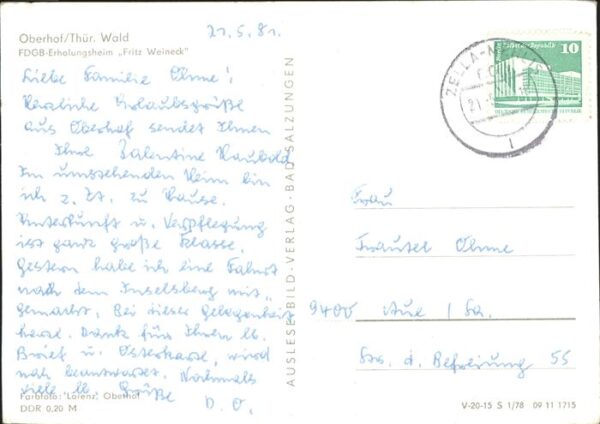 21.5.81.
Oberhof/Thür. Wald
FDGB-Erholungsheim „Fritz Weineck"
Liebe Familie Ohme!
Herzliche Urlaubsgrüße
aus Oberhof sendet Ihnen
Ihre Valentine Haubold
Im umstehenden Heim bin
ich z. Zt. zu Hause.
Unterkunft u. Verpflegung
ist ganz große Klasse.
Gestern habe ich eine Fahrt
nach dem Inselsberg mit-
gemacht. Bei dieser Gelegenheit
herzl. Dank für Ihren lb.
Brief u. Osterkarte, wird
noch beantwortet. Nochmals
viele lb. Grüße D. O.
Farbfoto: Lorenz, Oberhof
DDR 0,20 M
AUSLESE-BILD-VERLAG · BAD SALZUNGEN
10
ZELLA-M
21
Frau
Trautel Ohme
9400 Aue / Sa.
Str. d. Befreiung 55
V-20-15 S 1/78 09 11 1715